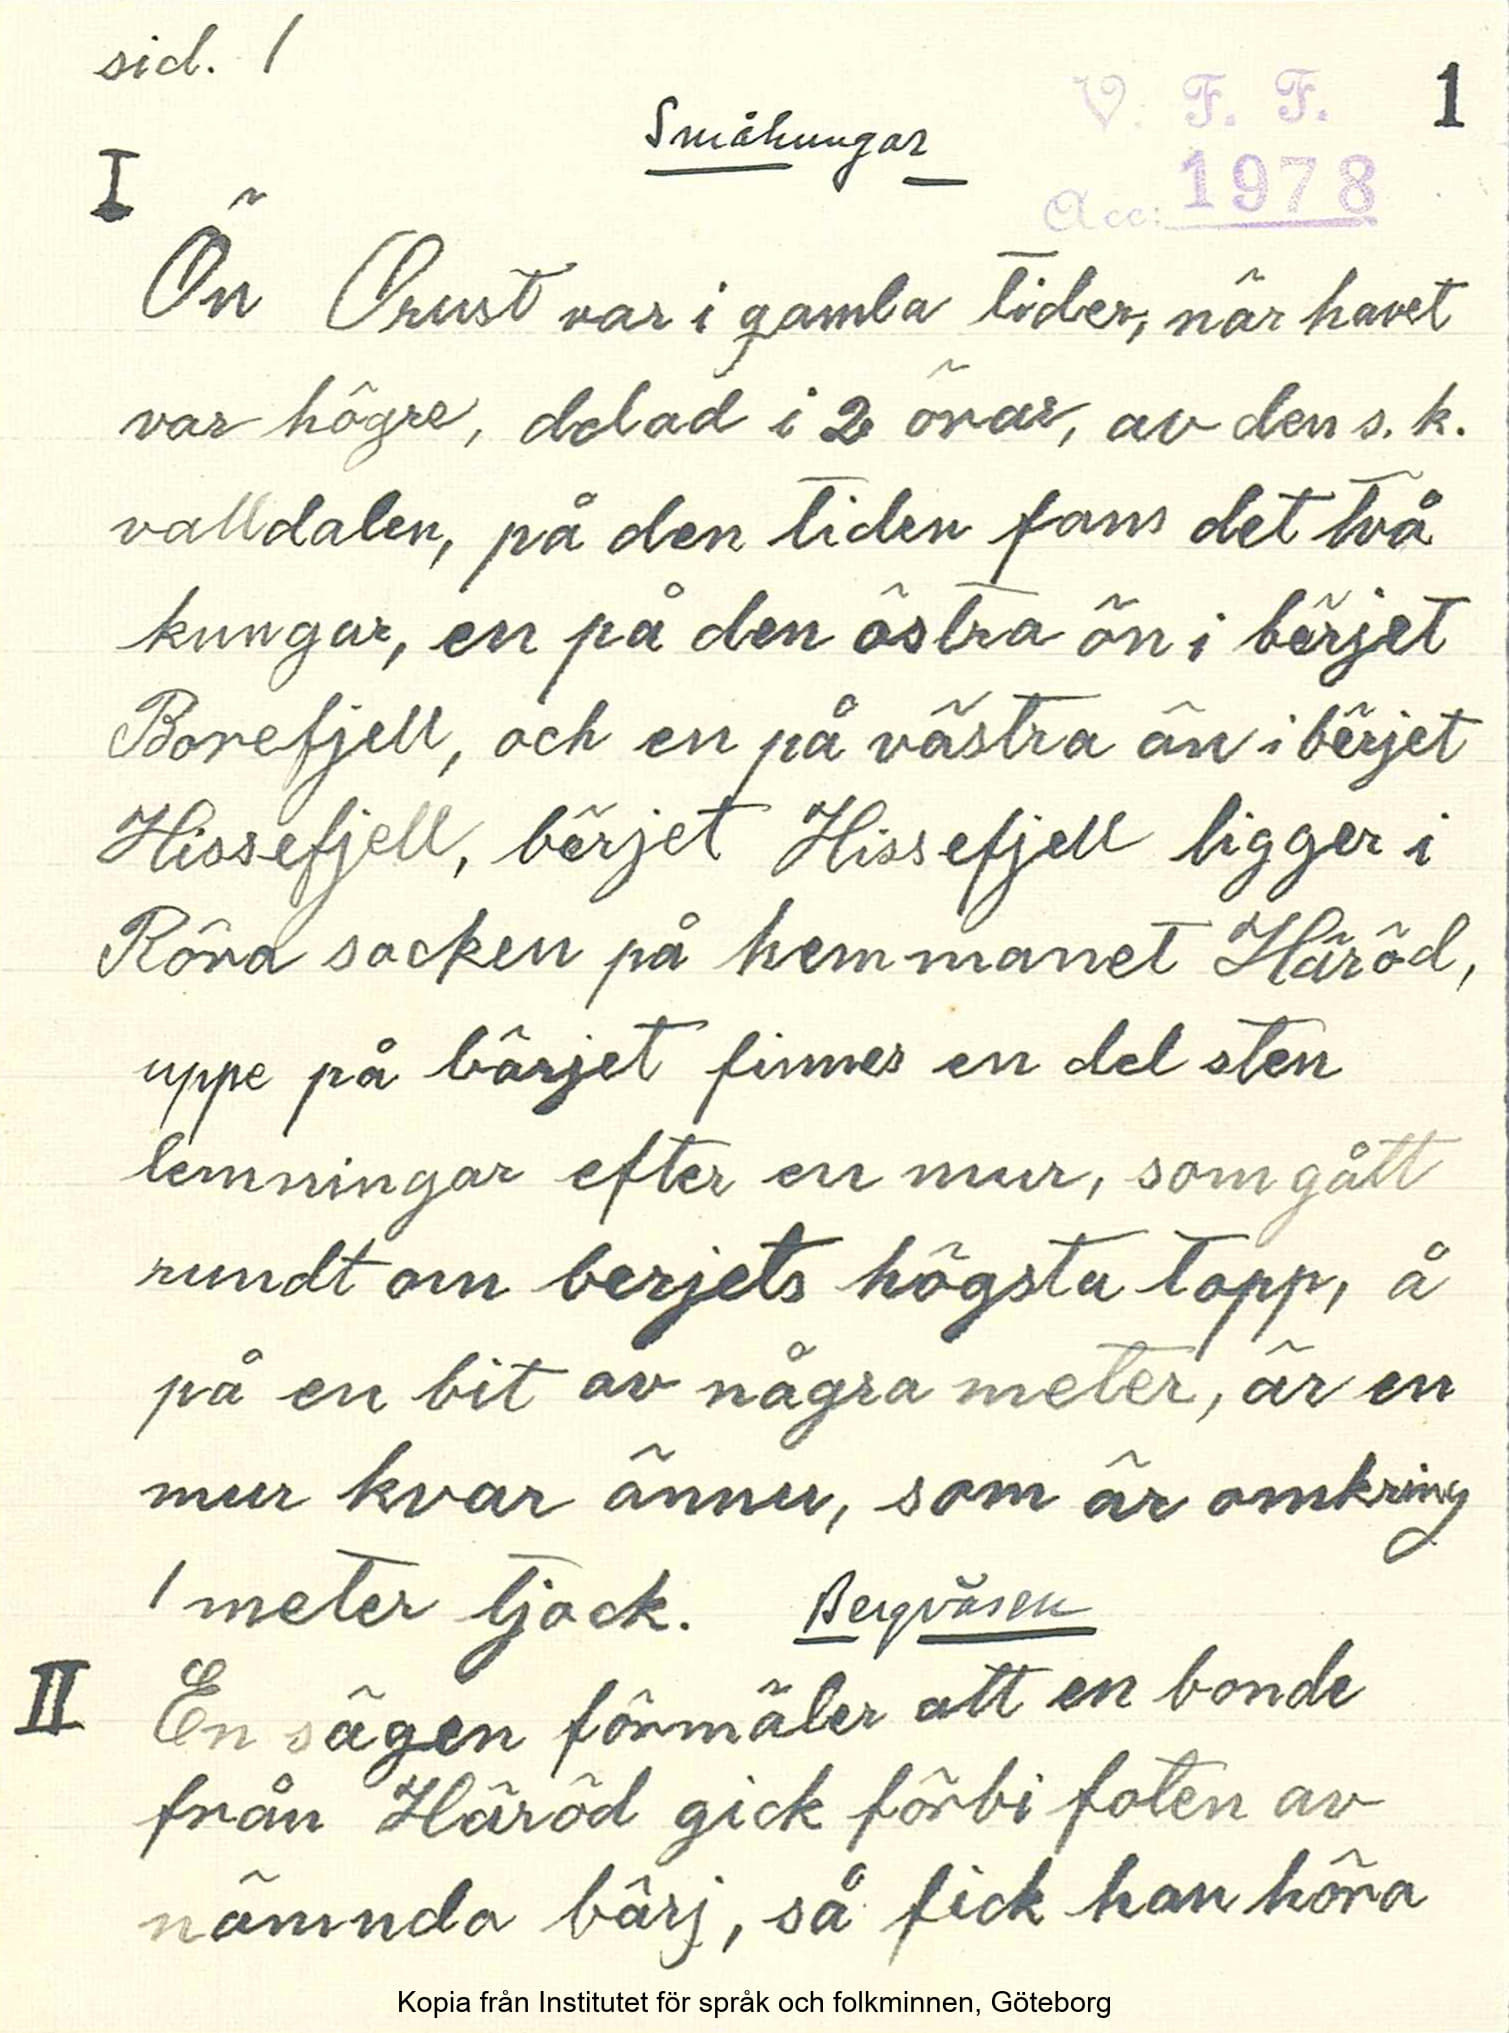 sid. 1
1
V. F. F.
Småkungar
1978
Acc:
I
Ön Orust var i gamla tider, när havet
var högre, delad i 2 övar, av den s. k.
valldalen, på den tiden fans det två
kungar, en på den östra ön i bërjet
Borefjell, och en på västra än i bërjet
Hissefjell, bërjet Hissefjell ligger i
Röra socken på hemmanet Häröd,
uppe på bärjet finnes en del sten
lemningar efter en mur, som gått
rundt om berjets högsta topp, å
på en bit av några meter, är en
mur kvar ännu, som är omkring
1 meter tjock. Bergväsen
II
En sägen förmäler att en bonde
från Häröd gick förbi foten av
nämnda bärj, så fick han höra
Kopia från Institutet för språk och folkminnen, Göteborg